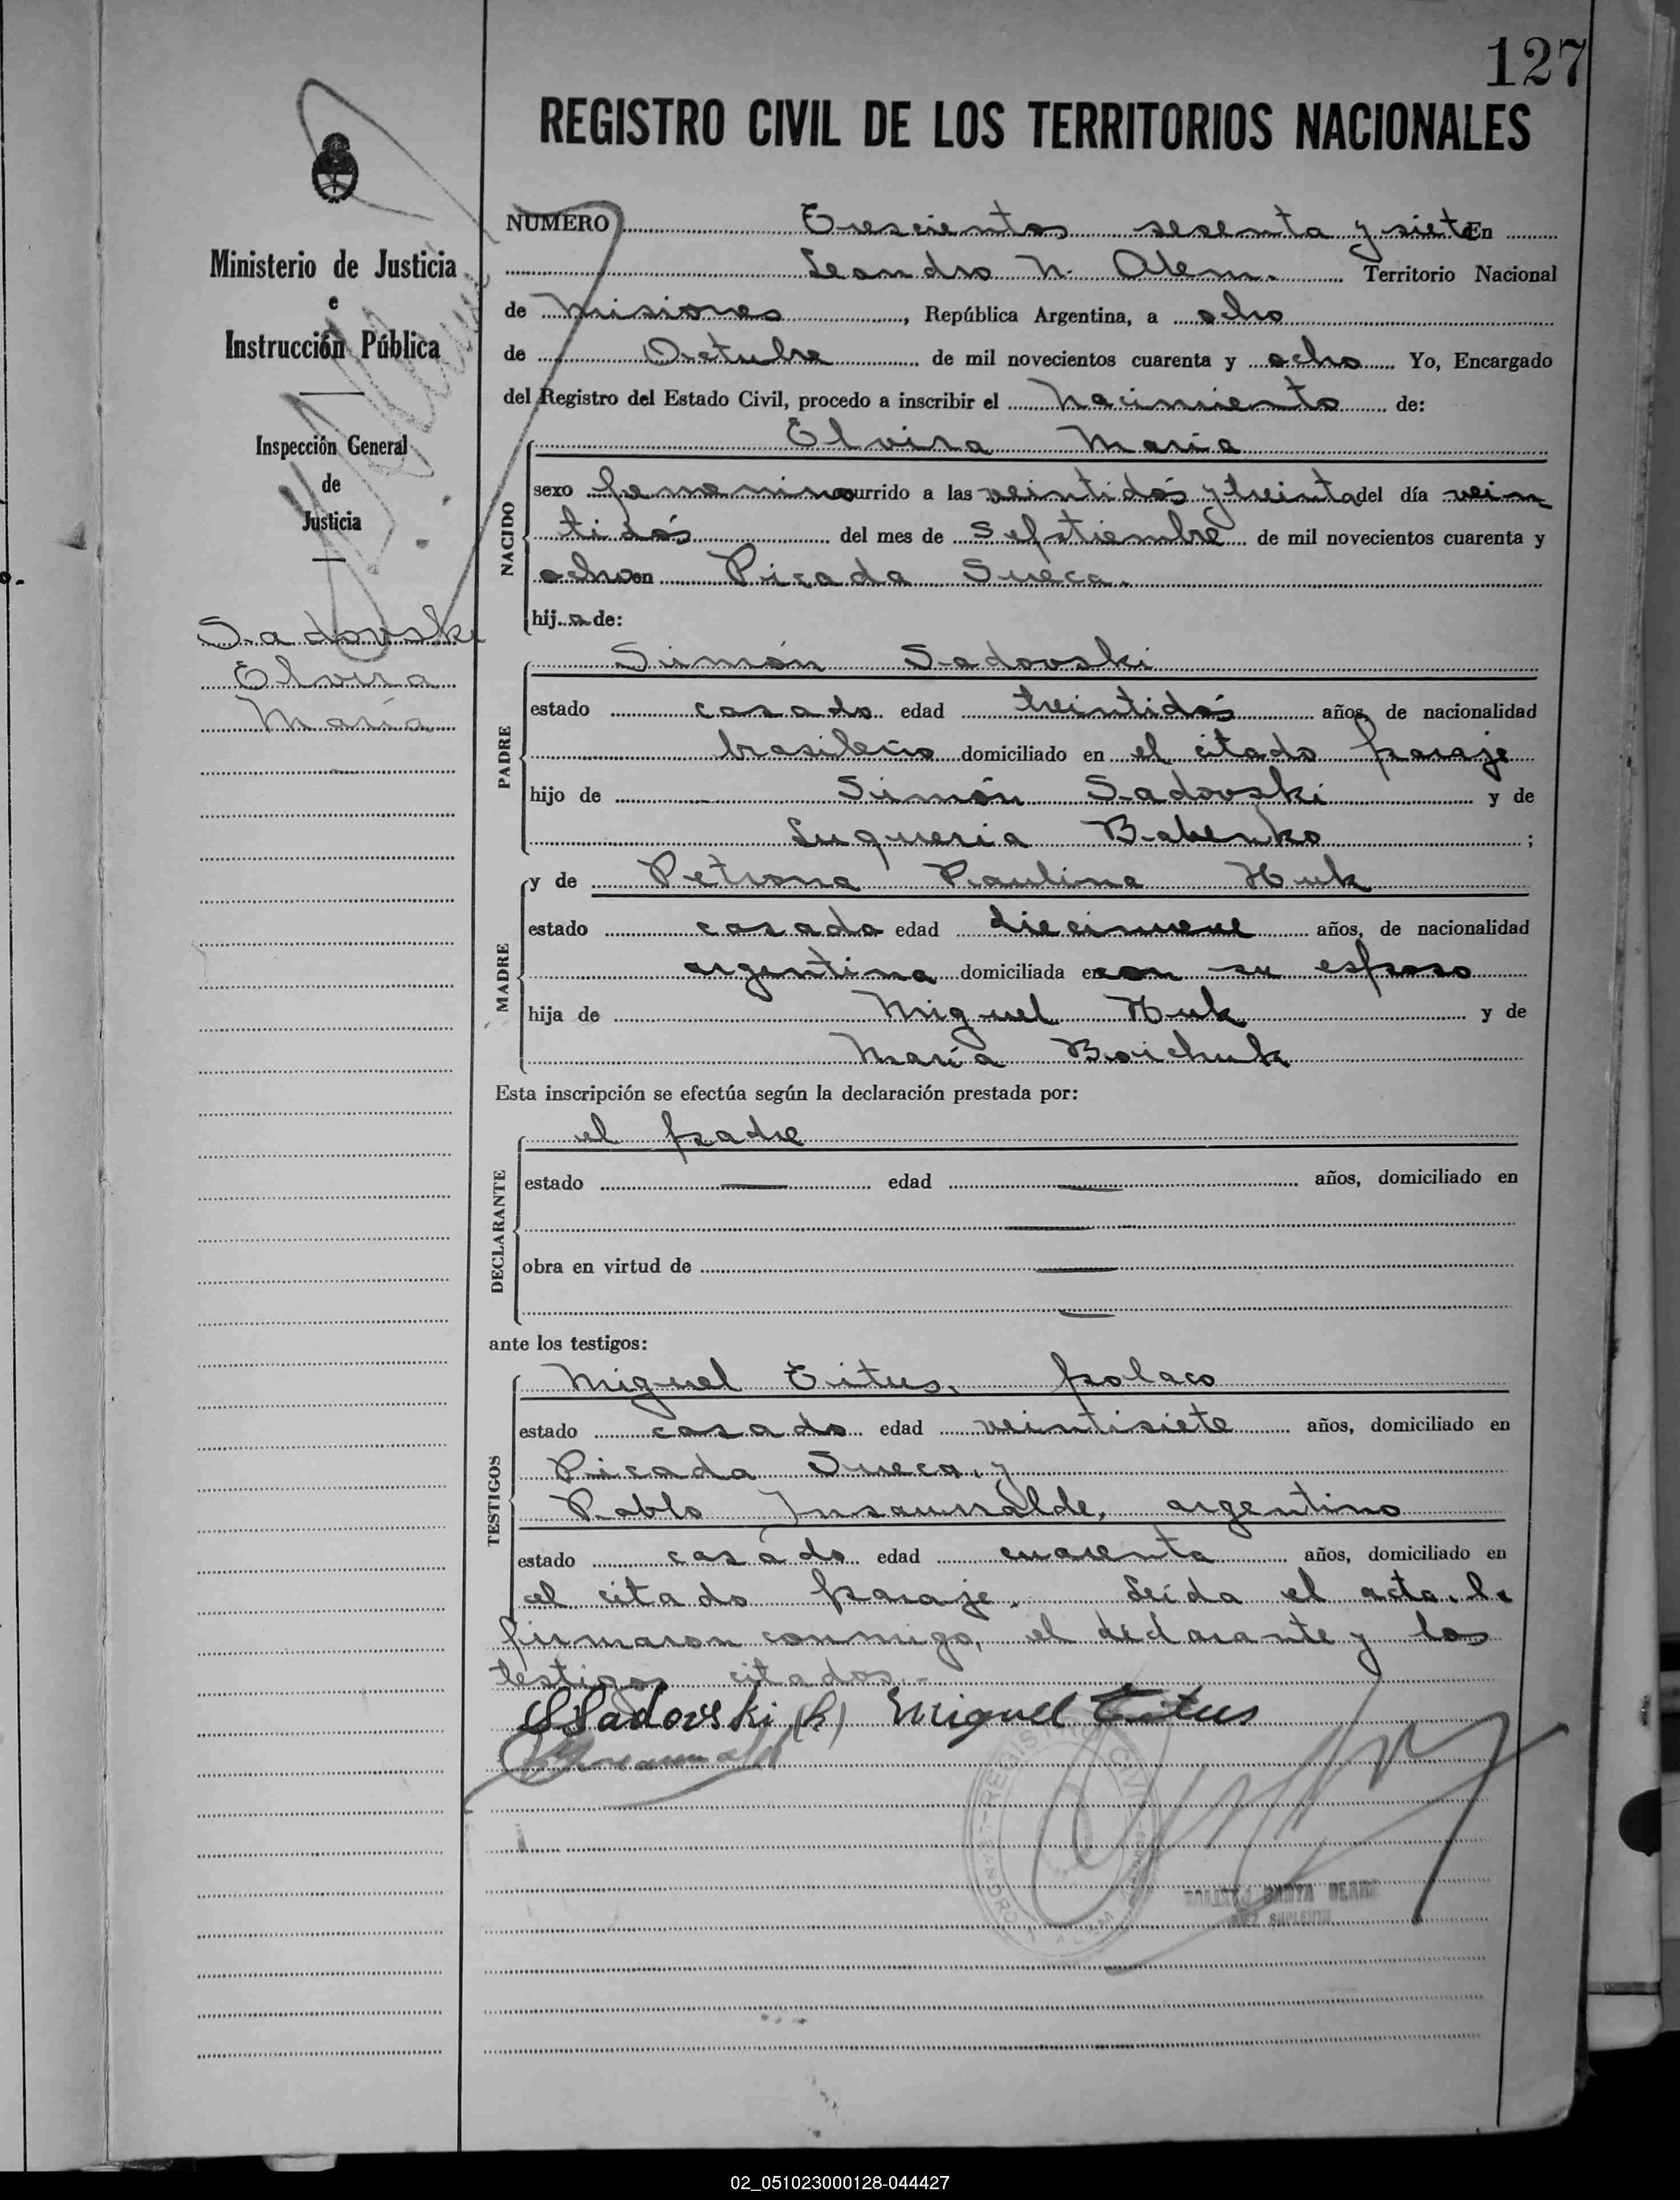 127
REGISTRO CIVIL DE LOS TERRITORIOS NACIONALES
Ministerio de Justicia
e
Instrucción Pública
Inspección General
de
Justicia
Sadovski
Elvira
María
NUMERO Trescientos sesenta y siete En
Leandro N. Alem. Territorio Nacional
de Misiones, República Argentina, a ocho
de Octubre de mil novecientos cuarenta y ocho Yo, Encargado
del Registro del Estado Civil, procedo a inscribir el nacimiento de:
NACIDO
Elvira María
sexo femenino ocurrido a las veintidós y treinta del día vein
tidós del mes de Septiembre de mil novecientos cuarenta y
ocho en Picada Sueca.
hij a de:
PADRE
Simón Sadovski
estado casado edad treintidós años, de nacionalidad
brasileño domiciliado en el citado paraje
hijo de Simón Sadovski y de
Luqueria Babenko ;
MADRE
y de Petrona Paulina Huk
estado casada edad diecinueve años, de nacionalidad
argentina domiciliada en con su esposo
hija de Miguel Huk y de
María Boichuk
Esta inscripción se efectúa según la declaración prestada por:
DECLARANTE
el padre
estado — edad — años, domiciliado en
—
obra en virtud de —
—
ante los testigos:
TESTIGOS
Miguel Titus, polaco
estado casado edad veintisiete años, domiciliado en
Picada Sueca, y
Pablo Insaurralde, argentino
estado casado edad cuarenta años, domiciliado en
el citado paraje. Leída el acta, la
firmaron conmigo, el declarante y los
testigos citados.-
SSadovski (h) Miguel Titus
REGISTRO CIVIL
JUEZ SUPLENTE
02_051023000128-044427